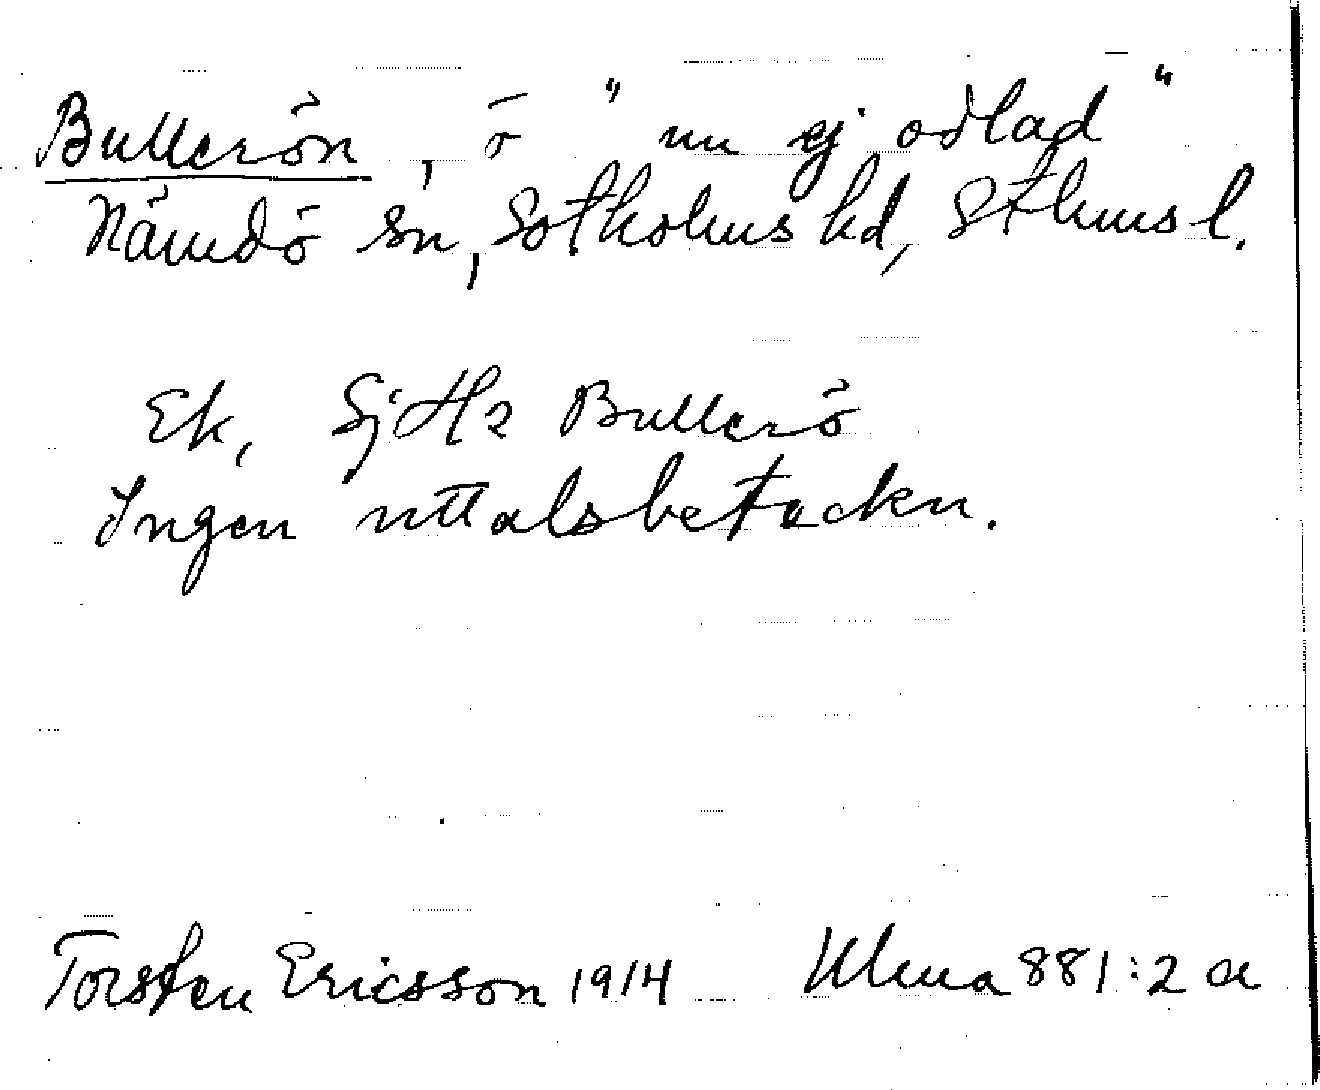 Bullerön, ö "nu ej odlad"
Nämdö sn, Sotholms hd, Sthms l.
Ek, Bullerö
Ingen uttalsbeteckn.
Torsten Ericsson 1914 Ulma 881:2 a